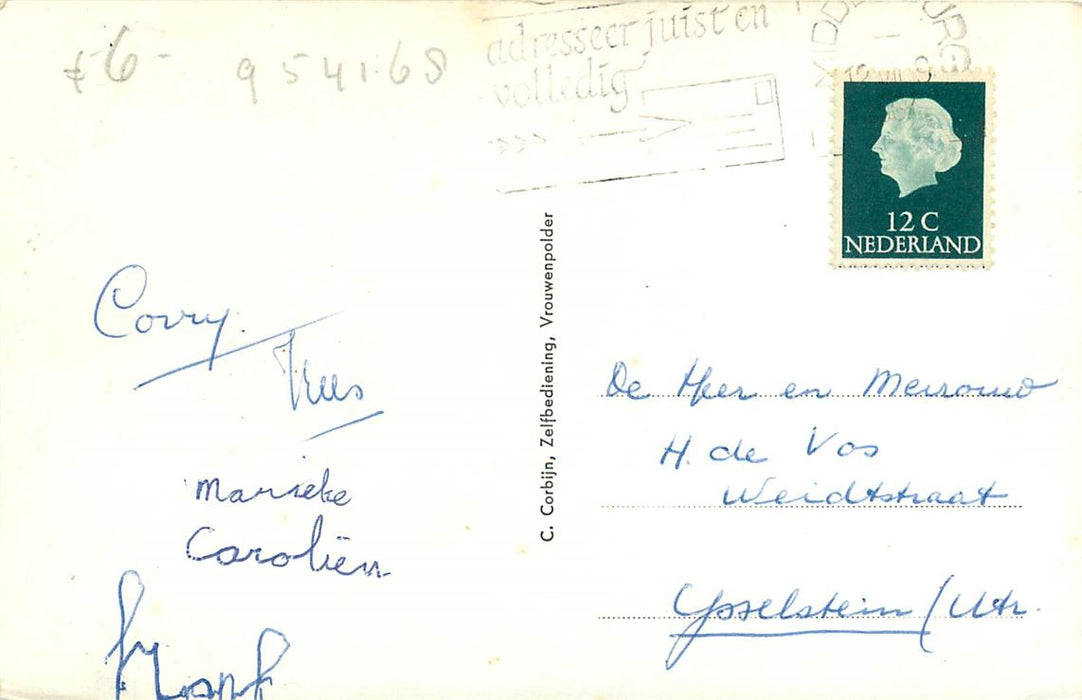 £6-
954168
adresseer juist en
volledig
12 C
NEDERLAND
C. Corbijn, Zelfbediening, Vrouwenpolder
Corry.
Kees
Marieke
Caroliën
De Heer en Mevrouw
H. de Vos
Weidtstraat
Ysselstein / Utr.